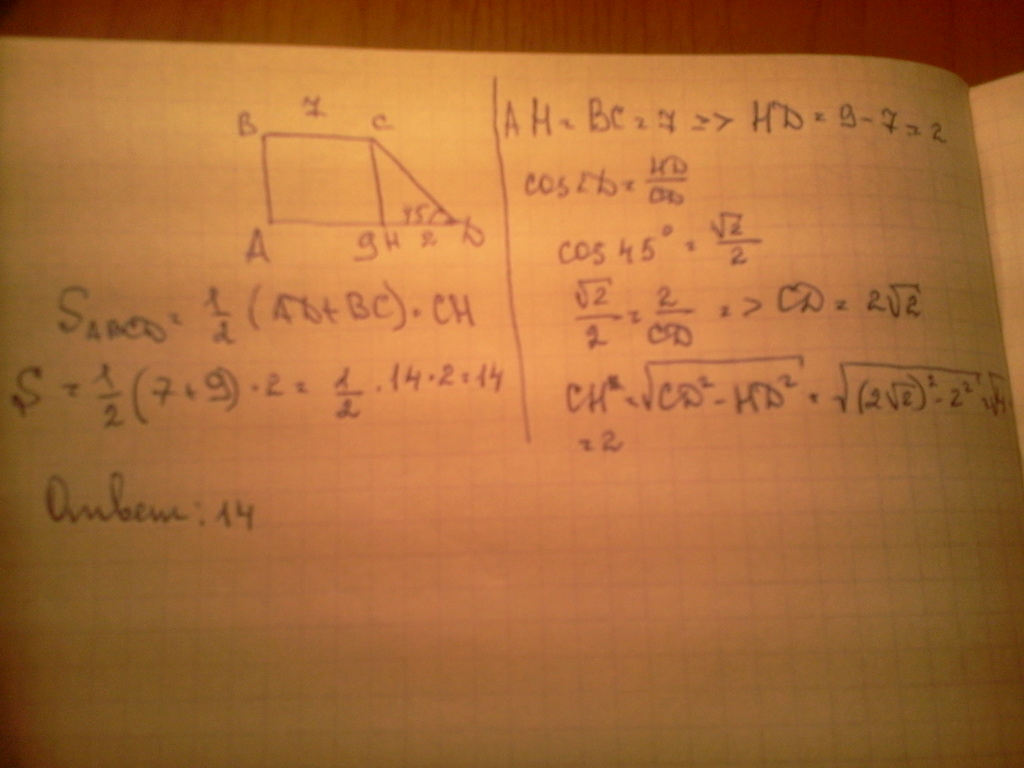 7
B C
45°
A 9 H 2 D
S ABCD = 1/2 (AD+BC)·CH
S = 1/2 (7+9)·2 = 1/2 · 14·2=14
Ответ: 14
AH = BC = 7 => HD = 9-7=2
cos∠D = HD/CD
cos 45° = √2/2
√2/2 = 2/CD => CD = 2√2
CH² = √CD²-HD² = √(2√2)²-2² = √4
=2